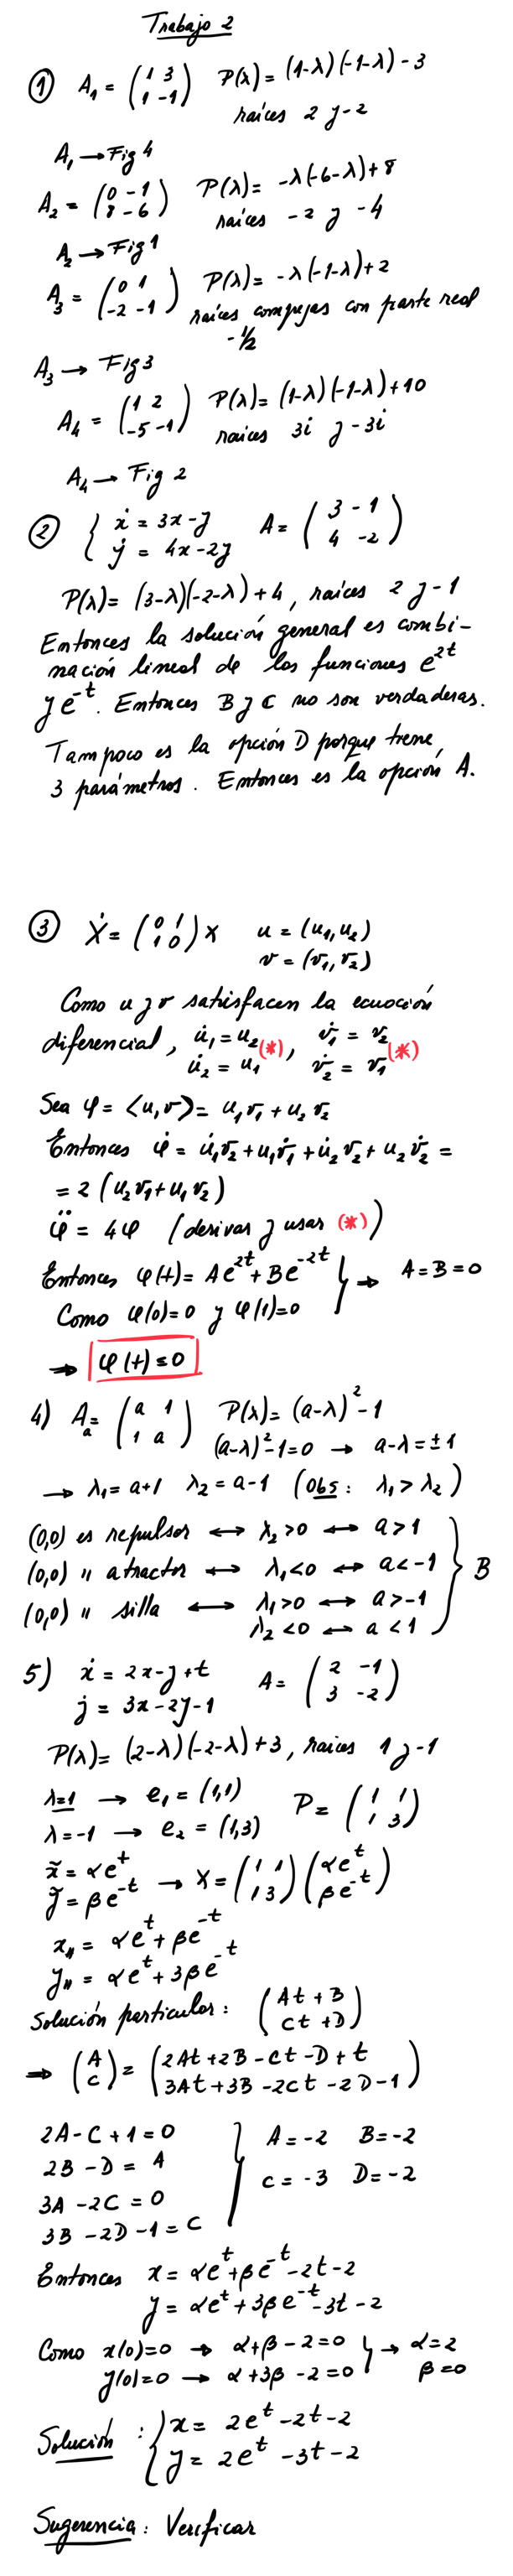 Trabajo 2
① A₁ = (1 3; 1 -1) P(λ) = (1-λ)(-1-λ) - 3
raíces 2 y -2
A₁ → Fig 4
A₂ = (0 -1; 8 -6) P(λ) = -λ(-6-λ)+8
raíces -2 y -4
A₂ → Fig 1
A₃ = (0 1; -2 -1) P(λ) = -λ(-1-λ)+2
raíces compejas con parte real
-1/2
A₃ → Fig 3
A₄ = (1 2; -5 -1) P(λ) = (1-λ)(-1-λ)+10
raices 3i y -3i
A₄ → Fig 2
② { ẋ = 3x-y A = (3 -1; 4 -2)
ẏ = 4x-2y
P(λ) = (3-λ)(-2-λ)+4, raíces 2 y -1
Entonces la solución general es combi-
nación lineal de las funciones e^{2t}
y e^{-t}. Entonces B y C no son verdaderas.
Tampoco es la opción D porque tiene
3 parámetros. Entonces es la opción A.
③ Ẋ = (0 1; 1 0) X u = (u₁, u₂)
v = (v₁, v₂)
Como u y v satisfacen la ecuación
diferencial, u̇₁ = u₂ (*), v̇₁ = v₂ (*)
u̇₂ = u₁ v̇₂ = v₁
Sea φ = <u,v> = u₁v₁ + u₂v₂
Entonces φ̇ = u̇₁v₂ + u₁v̇₁ + u̇₂v₂ + u₂v̇₂ =
= 2 (u₂v₁ + u₁v₂)
φ̈ = 4φ (derivar y usar (*))
Entonces φ(t) = Ae^{2t} + Be^{-2t} } → A = B = 0
Como φ(0)=0 y φ(1)=0
⇒ φ(t) ≡ 0
4) A_a = (a 1; 1 a) P(λ) = (a-λ)² - 1
(a-λ)² - 1 = 0 → a-λ = ±1
→ λ₁ = a+1 λ₂ = a-1 (Obs: λ₁ > λ₂)
(0,0) es repulsor ↔ λ₂>0 ↔ a>1
(0,0) " atractor ↔ λ₁<0 ↔ a<-1 } B
(0,0) " silla ↔ λ₁>0 ↔ a>-1
λ₂<0 ↔ a<1
5) ẋ = 2x-y+t A = (2 -1; 3 -2)
ẏ = 3x-2y-1
P(λ) = (2-λ)(-2-λ)+3, raices 1 y -1
λ=1 → e₁ = (1,1) P = (1 1; 1 3)
λ=-1 → e₂ = (1,3)
x̃ = αe^t
ỹ = βe^{-t} → X = (1 1; 1 3)(αe^t; βe^{-t})
x_H = αe^t + βe^{-t}
y_H = αe^t + 3βe^{-t}
Solución particular: (At + B; Ct + D)
⇒ (A; C) = (2At + 2B - Ct - D + t; 3At + 3B - 2Ct - 2D - 1)
2A - C + 1 = 0
2B - D = A } A = -2 B = -2
3A - 2C = 0 C = -3 D = -2
3B - 2D - 1 = C
Entonces x = αe^t + βe^{-t} - 2t - 2
y = αe^t + 3βe^{-t} - 3t - 2
Como x(0)=0 → α+β-2=0 } → α=2
y(0)=0 → α+3β-2=0 β=0
Solución : { x = 2e^t - 2t - 2
y = 2e^t - 3t - 2
Sugerencia: Verificar